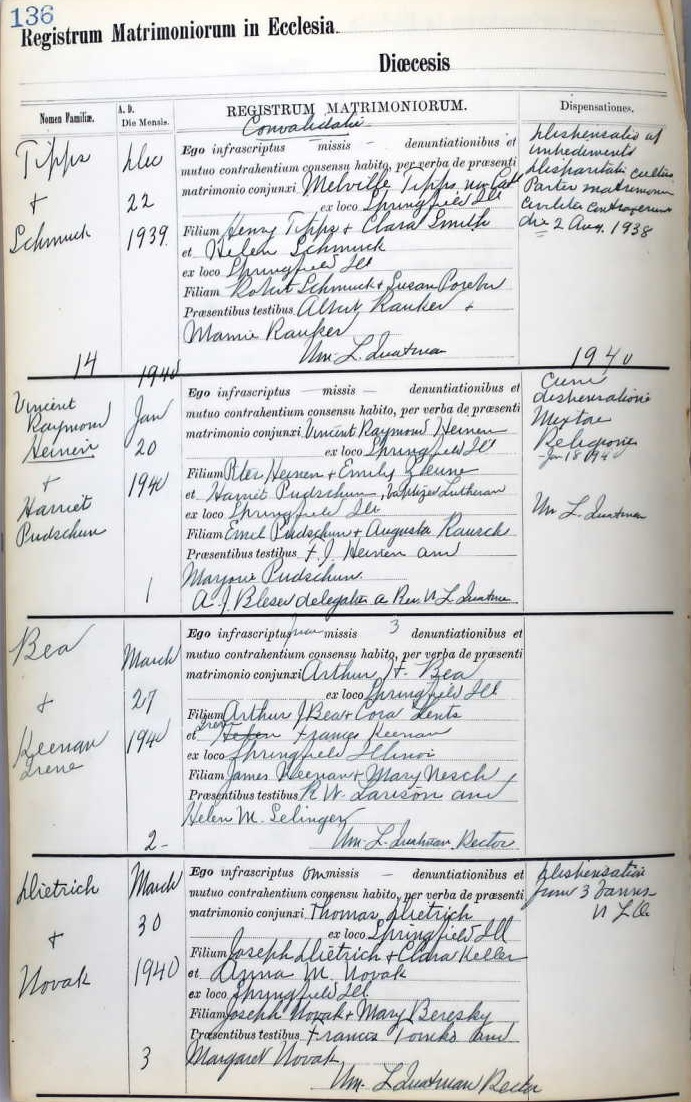 136
Registrum Matrimoniorum in Ecclesia
Diœcesis
Nomen Familiæ.
A. D.
Die Mensis.
REGISTRUM MATRIMONIORUM.
Dispensationes.
Tipps
+
Schmuck
14
Dec
22
1939
Convalidatio
Ego infrascriptus — missis — denuntiationibus et
mutuo contrahentium consensu habito, per verba de præsenti
matrimonio conjunxi Melville Tipps
ex loco Springfield Ill
Filium Henry Tipps + Clara Smith
et Helen Schmuck
ex loco Springfield Ill
Filiam Robert Schmuck + Susan
Præsentibus testibus Albert Rauker +
Mamie Rauker
Wm. L. Quatman
Dispensatio
Disparitati Cultus
Partes matrimonium
die 2 Aug. 1938
1940
1940
Vincent
Raymond
Heinen
+
Harriet
Pudschun
Jan
20
1940
1
Ego infrascriptus — missis — denuntiationibus et
mutuo contrahentium consensu habito, per verba de præsenti
matrimonio conjunxi Vincent Raymond Heinen
ex loco Springfield Ill
Filium Peter Heinen + Emily
et Harriet Pudschun, baptized Lutheran
ex loco Springfield Ill
Filiam Emil Pudschun + Augusta Rausch
Præsentibus testibus F. J. Heinen and
Marjorie Pudschun
A. J. Bleser delegatus a Rev. W L Quatman
Cum
dispensatione
Mixtae
Religionis
Jan 18 1940
Wm L. Quatman
Bea
+
Keenan
Irene
March
27
1940
2
Ego infrascriptus missis 3 denuntiationibus et
mutuo contrahentium consensu habito, per verba de præsenti
matrimonio conjunxi Arthur H. Bea
ex loco Springfield Ill
Filium Arthur J Bea + Cora Lents
et Irene Helen Frances Keenan
ex loco Springfield Illinois
Filiam James Keenan + Mary Nesch
Præsentibus testibus R. W. Larison and
Helen M. Selinger
Wm. L. Quatman, Rector
Dietrich
+
Novak
March
30
1940
3
Ego infrascriptus Ommissis — denuntiationibus et
mutuo contrahentium consensu habito, per verba de præsenti
matrimonio conjunxi Thomas Dietrich
ex loco Springfield Ill
Filium Joseph Dietrich + Clara Keller
et Anna M. Novak
ex loco Springfield Ill.
Filiam Joseph Novak + Mary Beresky
Præsentibus testibus Francis Tomko and
Margaret Novak
Wm. L Quatman Rector
Dispensatio
3 Bannis
W L Q.